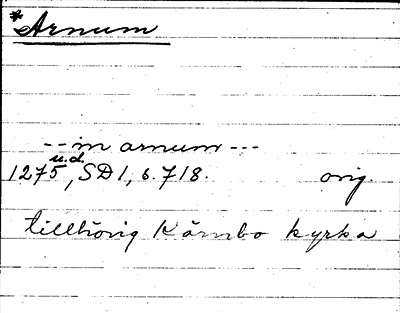 *Arnum
--in arnum---
u.d.
1275, SD1, s. 718. orig.
tillhörig Kärnbo kyrka